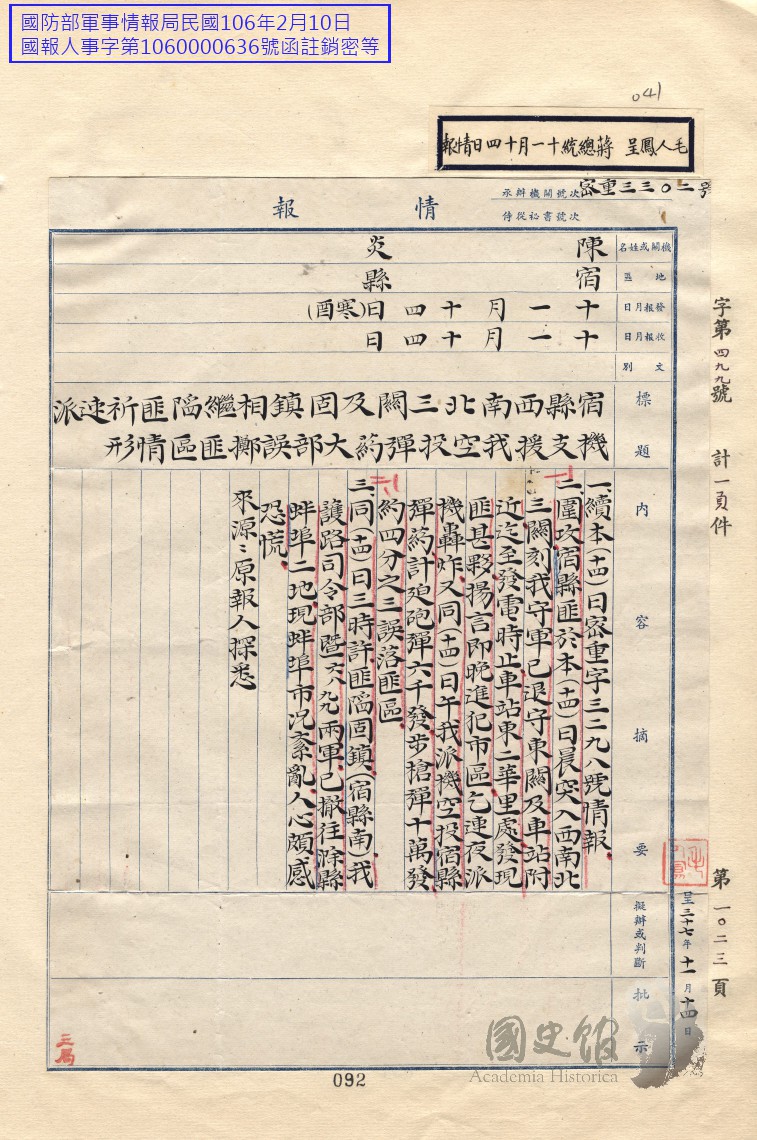 國防部軍事情報局民國106年2月10日
國報人事字第1060000636號函註銷密等
041
毛人鳳呈 蔣總統十一月十四日情報
情報
承辦機關號次
密重三三〇二號
侍從秘書號次
機關或姓名
陳炎
地區
宿縣
發報月日
十一月十四日(寒酉)
收報月日
十一月十四日
文別
標題
宿縣西南北三關及固鎮相繼陷匪祈速派
機支援我空投彈約大部誤擲匪區情形
內容摘要
一、續本(十四)日密重字三二九八號情報
二、圍攻宿縣匪於本(十四)日晨突入西南北
三關刻我守軍已退守東關及車站附
近迄至發電時止車站東二華里處發現
匪甚夥揚言即晚進犯市區乞連夜派
機轟炸又同(十四)日午我派機空投宿縣
彈約計廹砲彈六千發步槍彈十萬發
約四分之三誤落匪區
三、同(十四)日三時許匪陷固鎮(宿縣南)我
護路司令部暨六八、九九兩軍已撤往滁縣
蚌埠二地現蚌埠市況紊亂人心頗感
恐慌
來源:原報人探悉
擬辦或判斷
批示
呈三十七年十一月十四日
字第四九九號 計一頁件
第一〇二三頁
三局
國史館
Academia Historica
092